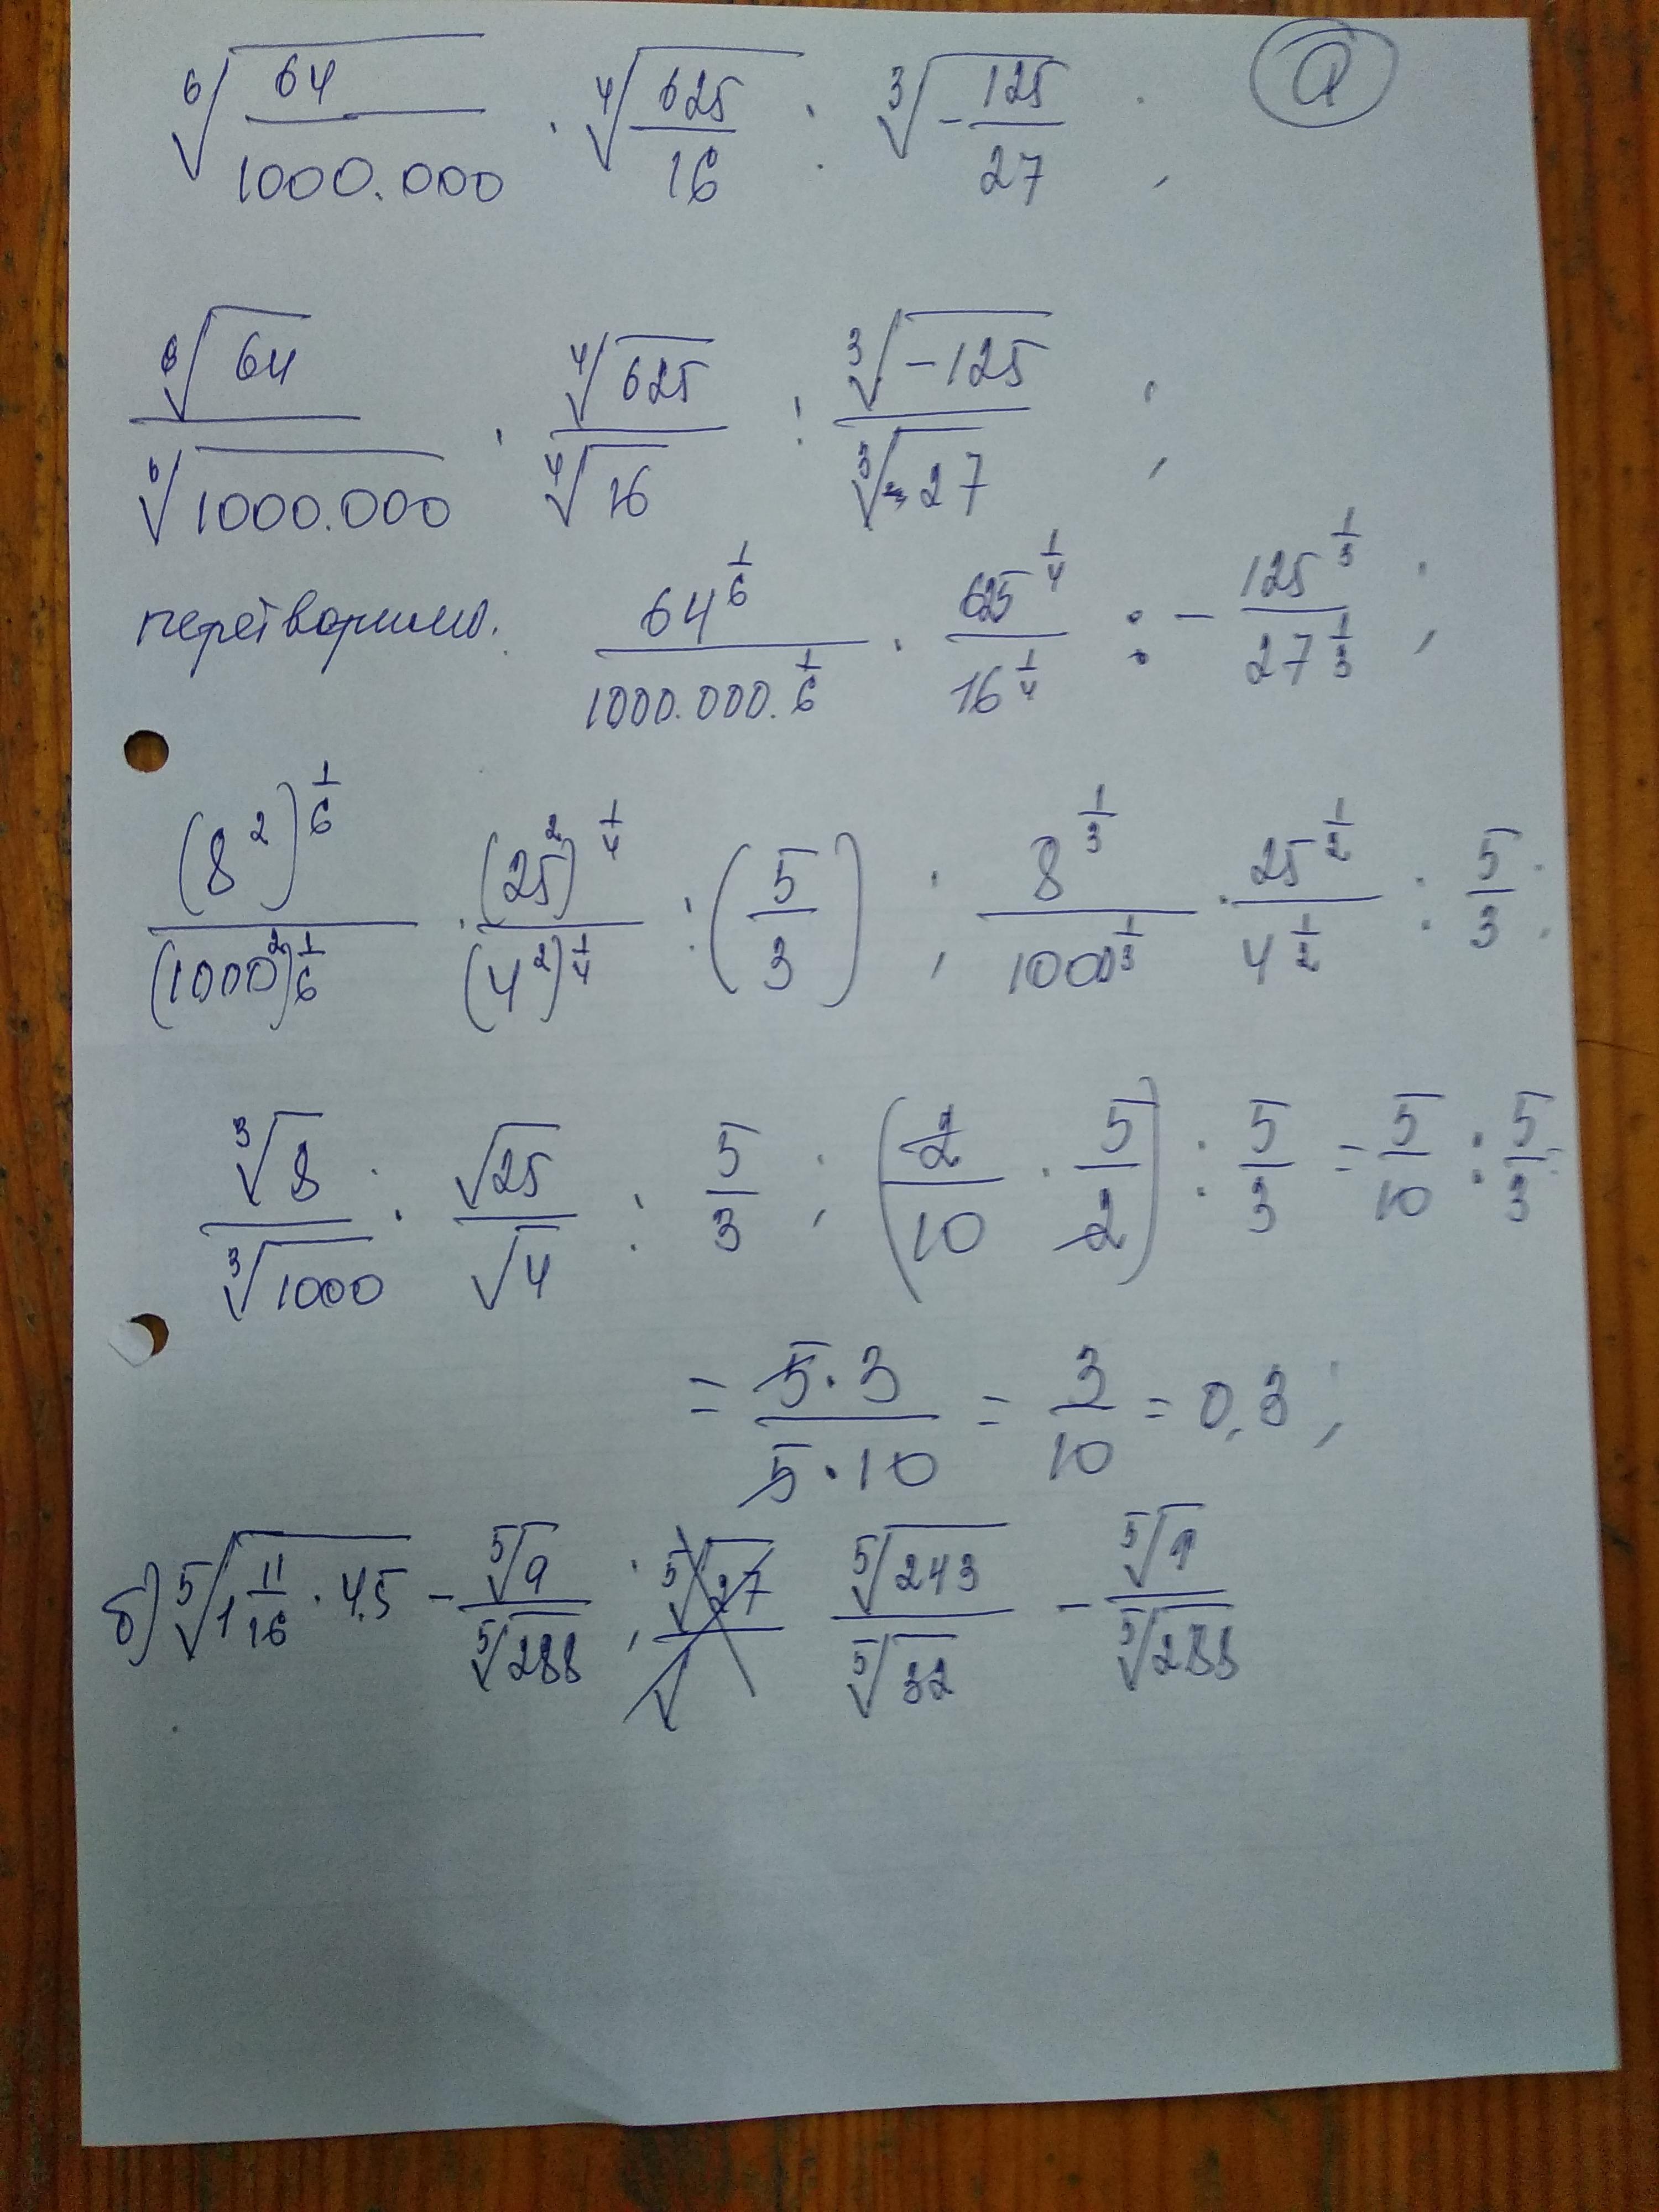 а
⁶√(64/1000.000) · ⁴√(625/16) : ³√(-125/27) ;
⁶√64/⁶√1000.000 · ⁴√625/⁴√16 : ³√-125/³√27 ;
перетворимо. 64^(1/6)/1000.000.^(1/6) · 625^(1/4)/16^(1/4) : - 125^(1/3)/27^(1/3) ;
(8²)^(1/6)/(1000²)^(1/6) · (25²)^(1/4)/(4²)^(1/4) : (5/3) ; 8^(1/3)/1000^(1/3) · 25^(1/2)/4^(1/2) : 5/3 ;
³√8/³√1000 · √25/√4 : 5/3 ; (2/10 · 5/2) : 5/3 = 5/10 : 5/3 =
= 5·3/5·10 = 3/10 = 0,3 ;
б) ⁵√(1 11/16 · 4.5) - ⁵√9/⁵√288 ; ⁵√243/⁵√32 - ⁵√9/⁵√288